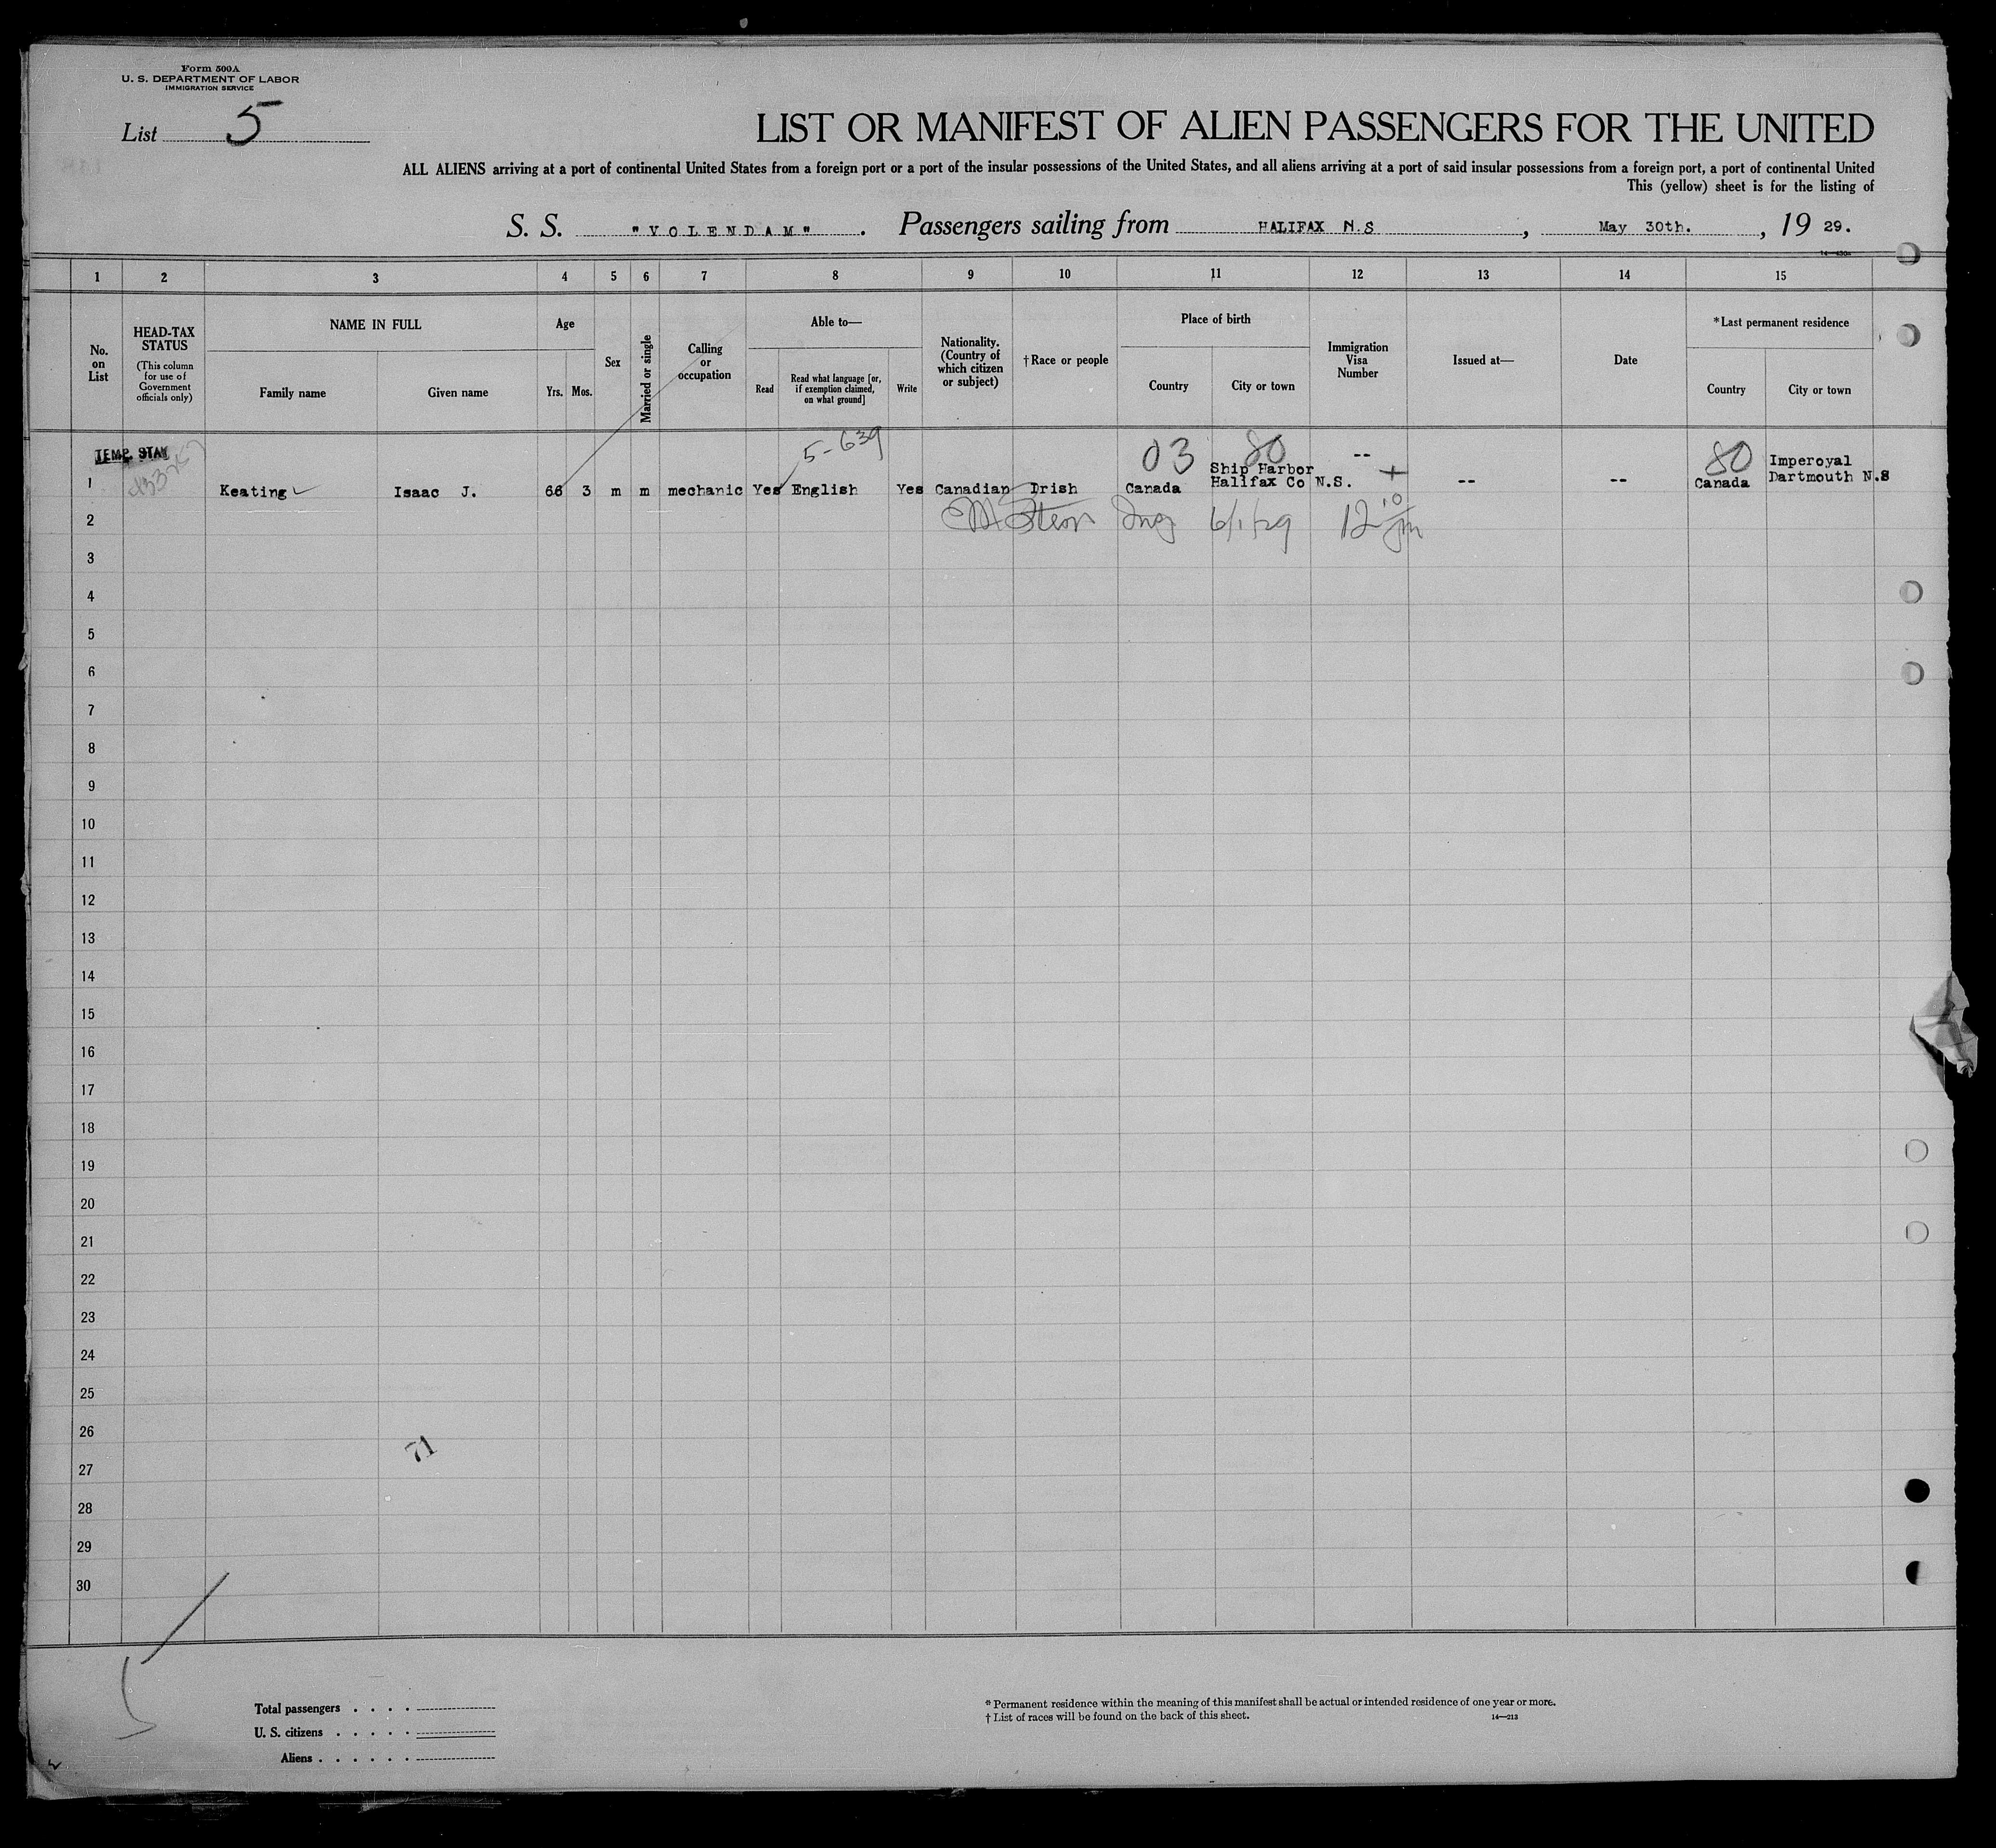 Form 500A
U. S. DEPARTMENT OF LABOR
IMMIGRATION SERVICE
List 5
LIST OR MANIFEST OF ALIEN PASSENGERS FOR THE UNITED
ALL ALIENS arriving at a port of continental United States from a foreign port or a port of the insular possessions of the United States, and all aliens arriving at a port of said insular possessions from a foreign port, a port of continental United
This (yellow) sheet is for the listing of
S. S. "VOLENDAM". Passengers sailing from HALIFAX N.S, May 30th., 19 29.
1 2 3 4 5 6 7 8 9 10 11 12 13 14 15
No. on List
HEAD-TAX STATUS
(This column for use of Government officials only)
NAME IN FULL
Family name Given name
Age
Yrs. Mos.
Sex
Married or single
Calling or occupation
Able to—
Read
Read what language [or, if exemption claimed, on what ground]
Write
Nationality. (Country of which citizen or subject)
†Race or people
Place of birth
Country City or town
Immigration Visa Number
Issued at—
Date
*Last permanent residence
Country City or town
5-639
03 80 -- 80
TEMP. STAY
Ship Harbor Imperoyal
1 Keating Isaac J. 66 3 m m mechanic Yes English Yes Canadian Irish Canada Halifax Co N.S. -- -- Canada Dartmouth N.S
2 6/1/29 12
3
4
5
6
7
8
9
10
11
12
13
14
15
16
17
18
19
20
21
22
23
24
25
26
71
27
28
29
30
Total passengers . . . .
U. S. citizens . . . . .
Aliens . . . . . .
* Permanent residence within the meaning of this manifest shall be actual or intended residence of one year or more.
† List of races will be found on the back of this sheet.
14—213